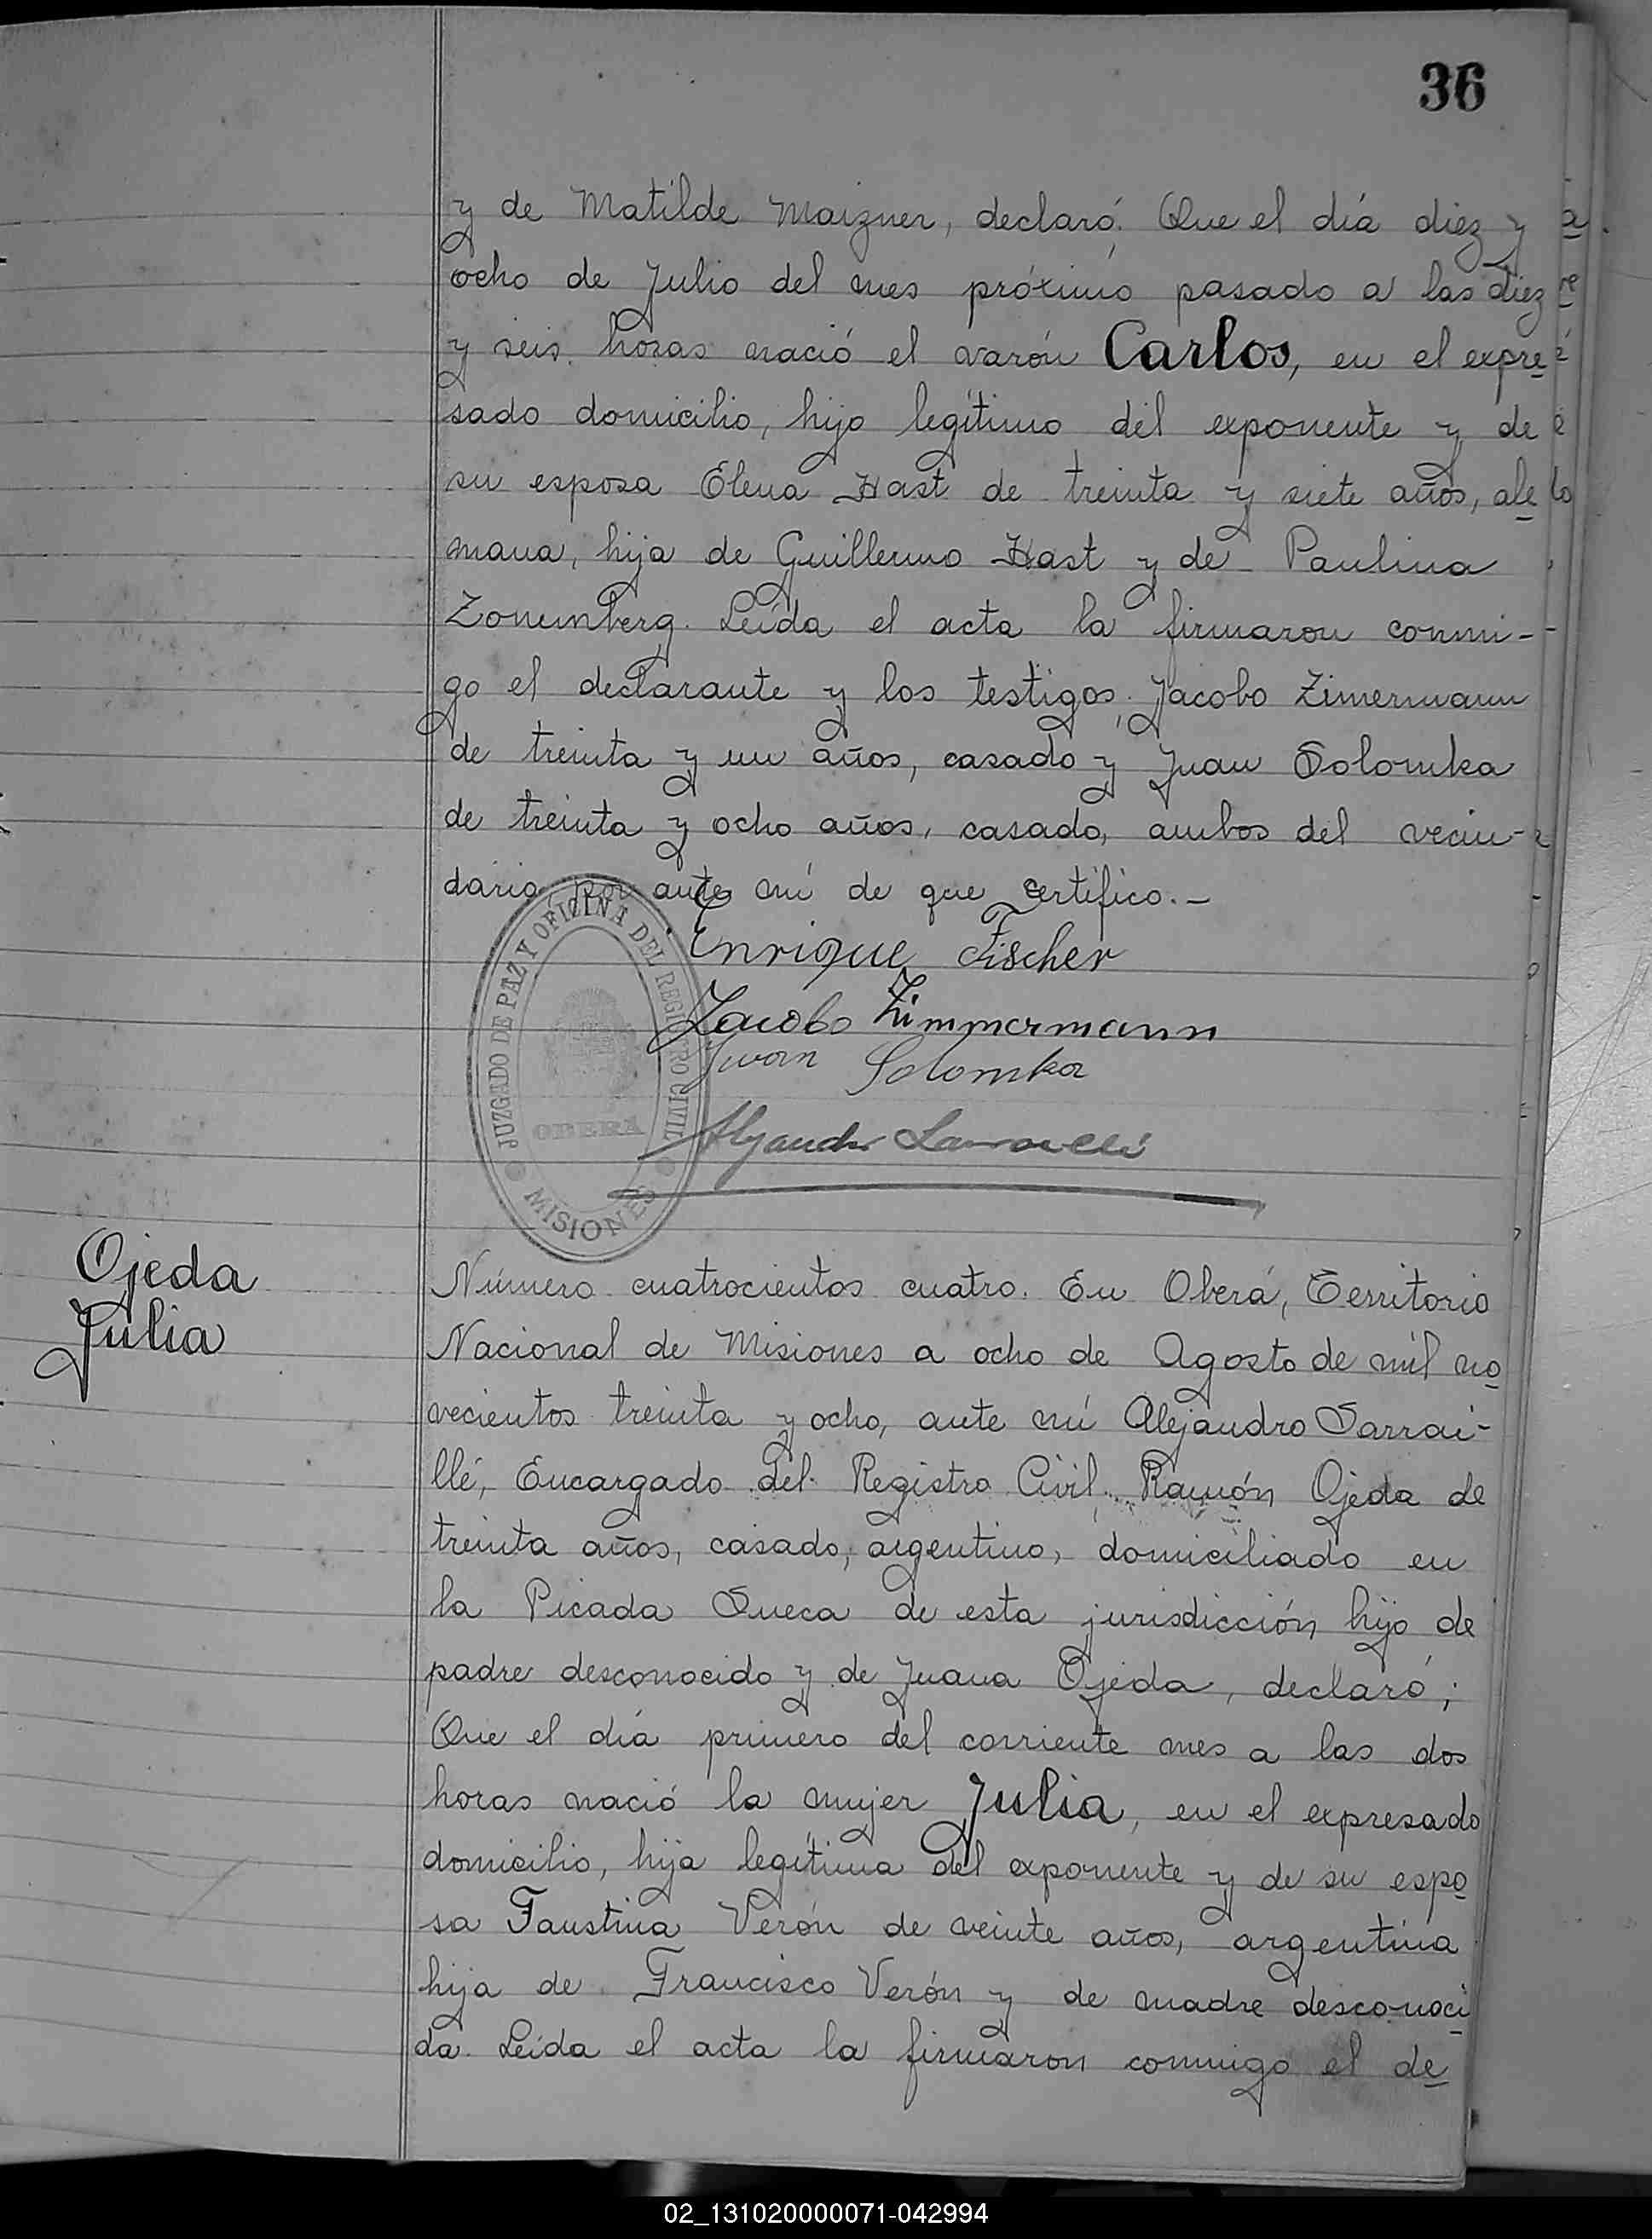 36
y de Matilde Maizner, declaró: Que el día diez y
ocho de Julio del mes próximo pasado a las diez
y seis horas nació el varón Carlos, en el expre
sado domicilio, hijo legítimo del exponente y de
su esposa Elena Hast de treinta y siete años, ale
mana, hija de Guillermo Hast y de Paulina
Zonemberg. Leída el acta la firmaron conmi-
go el declarante y los testigos. Jacobo Zimermann
de treinta y un años, casado y Juan Solomka
de treinta y ocho años, casado, ambos del vecin-
dario por ante mí de que certifico.-
Enrique Fischer
Jacobo Zimmermann
Juan Solomka
JUZGADO DE PAZ Y OFICINA DEL REGISTRO CIVIL
OBERA
MISIONES
Ojeda
Julia
Número cuatrocientos cuatro. En Oberá, Territorio
Nacional de Misiones a ocho de Agosto de mil no
vecientos treinta y ocho, ante mí Alejandro Sarrai-
llé, Encargado del Registro Civil. Ramón Ojeda de
treinta años, casado, argentino, domiciliado en
la Picada Sueca de esta jurisdicción hijo de
padre desconocido y de Juana Ojeda, declaró;
Que el día primero del corriente mes a las dos
horas nació la mujer Julia, en el expresado
domicilio, hija legítima del exponente y de su espo
sa Faustina Verón de veinte años, argentina
hija de Francisco Verón y de madre desconoci
da. Leída el acta la firmaron conmigo el de
02_131020000071-042994